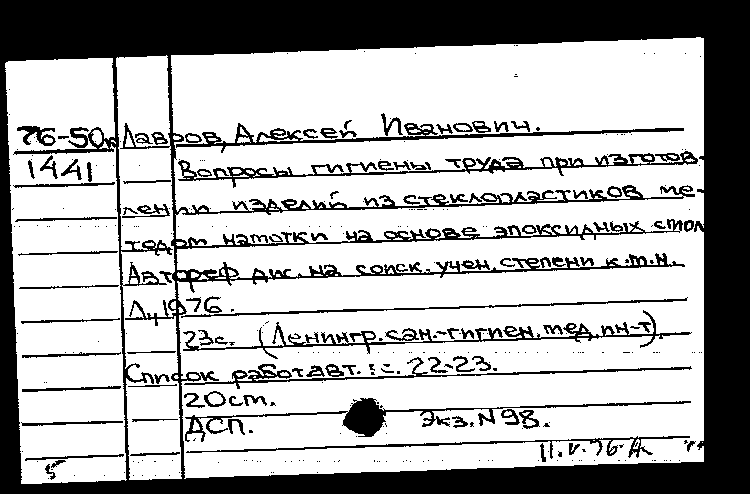 76-50к Лавров, Алексей Иванович.
1441 Вопросы гигиены труда при изготов-
лении изделий из стеклопластиков ме-
тодом намотки на основе эпоксидных смол
Автореф дис. на соиск. учен. степени к.м.н.
Л., 1976.
23с. (Ленингр. сан.-гигиен. мед. ин-т).
Список работ авт.: с. 22-23.
20ст.
ДСП. Экз. N 98.
11.V.76.
5